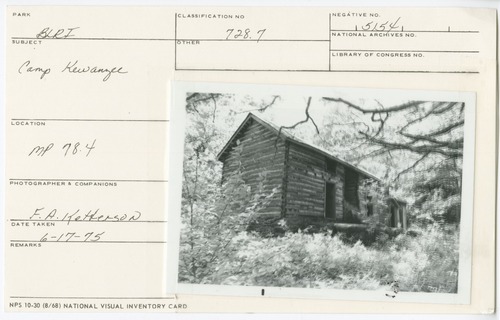 PARK
BLRI
CLASSIFICATION NO
728.7
NEGATIVE NO.
5154
SUBJECT
Camp Kewanzee
OTHER
NATIONAL ARCHIVES NO.
LIBRARY OF CONGRESS NO.
LOCATION
MP 78.4
PHOTOGRAPHER & COMPANIONS
F. A. Ketterson
DATE TAKEN
6-17-75
REMARKS
NPS 10-30 (8/68) NATIONAL VISUAL INVENTORY CARD